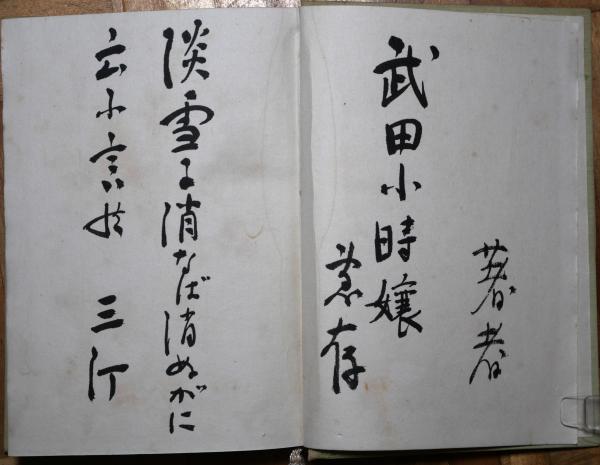 著者
武田小時嬢
恵存
淡雪 消なば消ぬがに
云ふ言
三汀